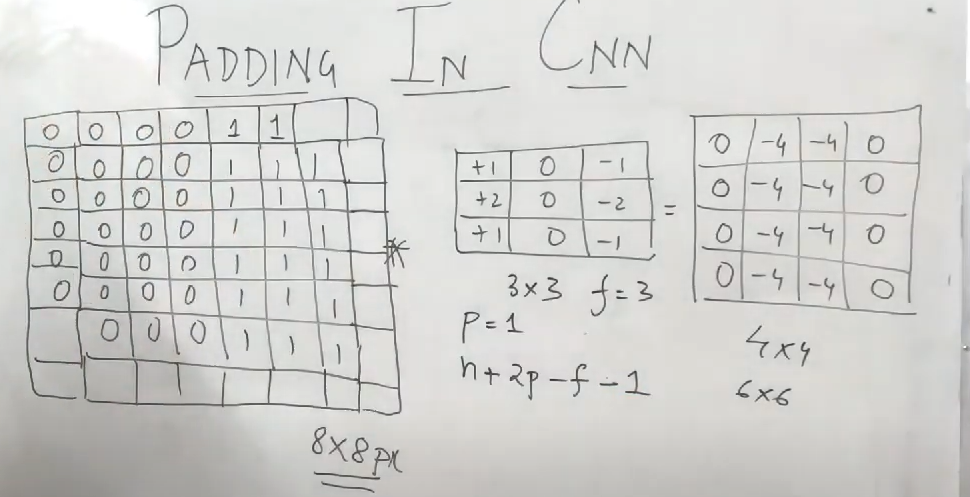 PADDING IN CNN
0 0 0 0 1 1
0 0 0 0 1 1 1
0 0 0 0 1 1 1
0 0 0 0 1 1 1
0 0 0 0 1 1 1
0 0 0 0 1 1 1
0 0 0 1 1 1
8×8 px
*
+1 0 -1
+2 0 -2
+1 0 -1
3×3 f=3
P=1
n+2p-f-1
=
0 -4 -4 0
0 -4 -4 0
0 -4 -4 0
0 -4 -4 0
4×4
6×6